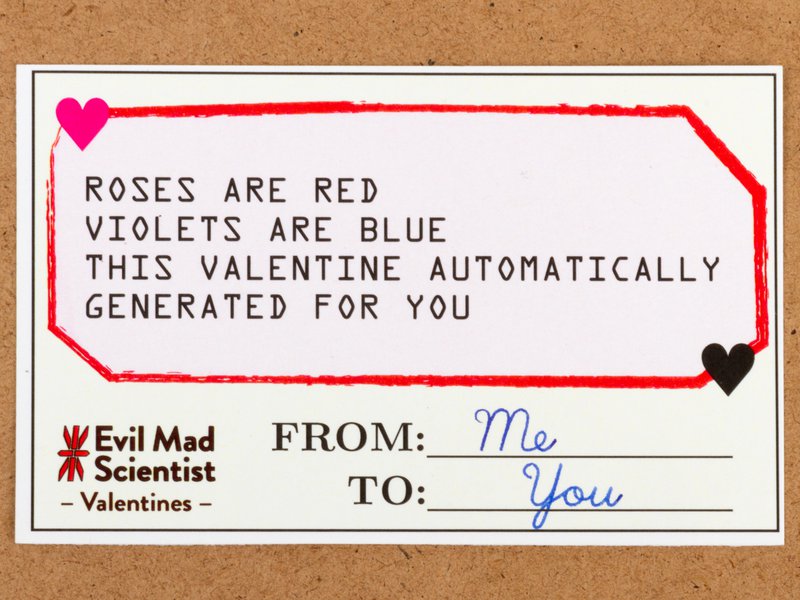 ROSES ARE RED
VIOLETS ARE BLUE
THIS VALENTINE AUTOMATICALLY
GENERATED FOR YOU
Evil Mad
Scientist
– Valentines –
FROM: Me
TO: You